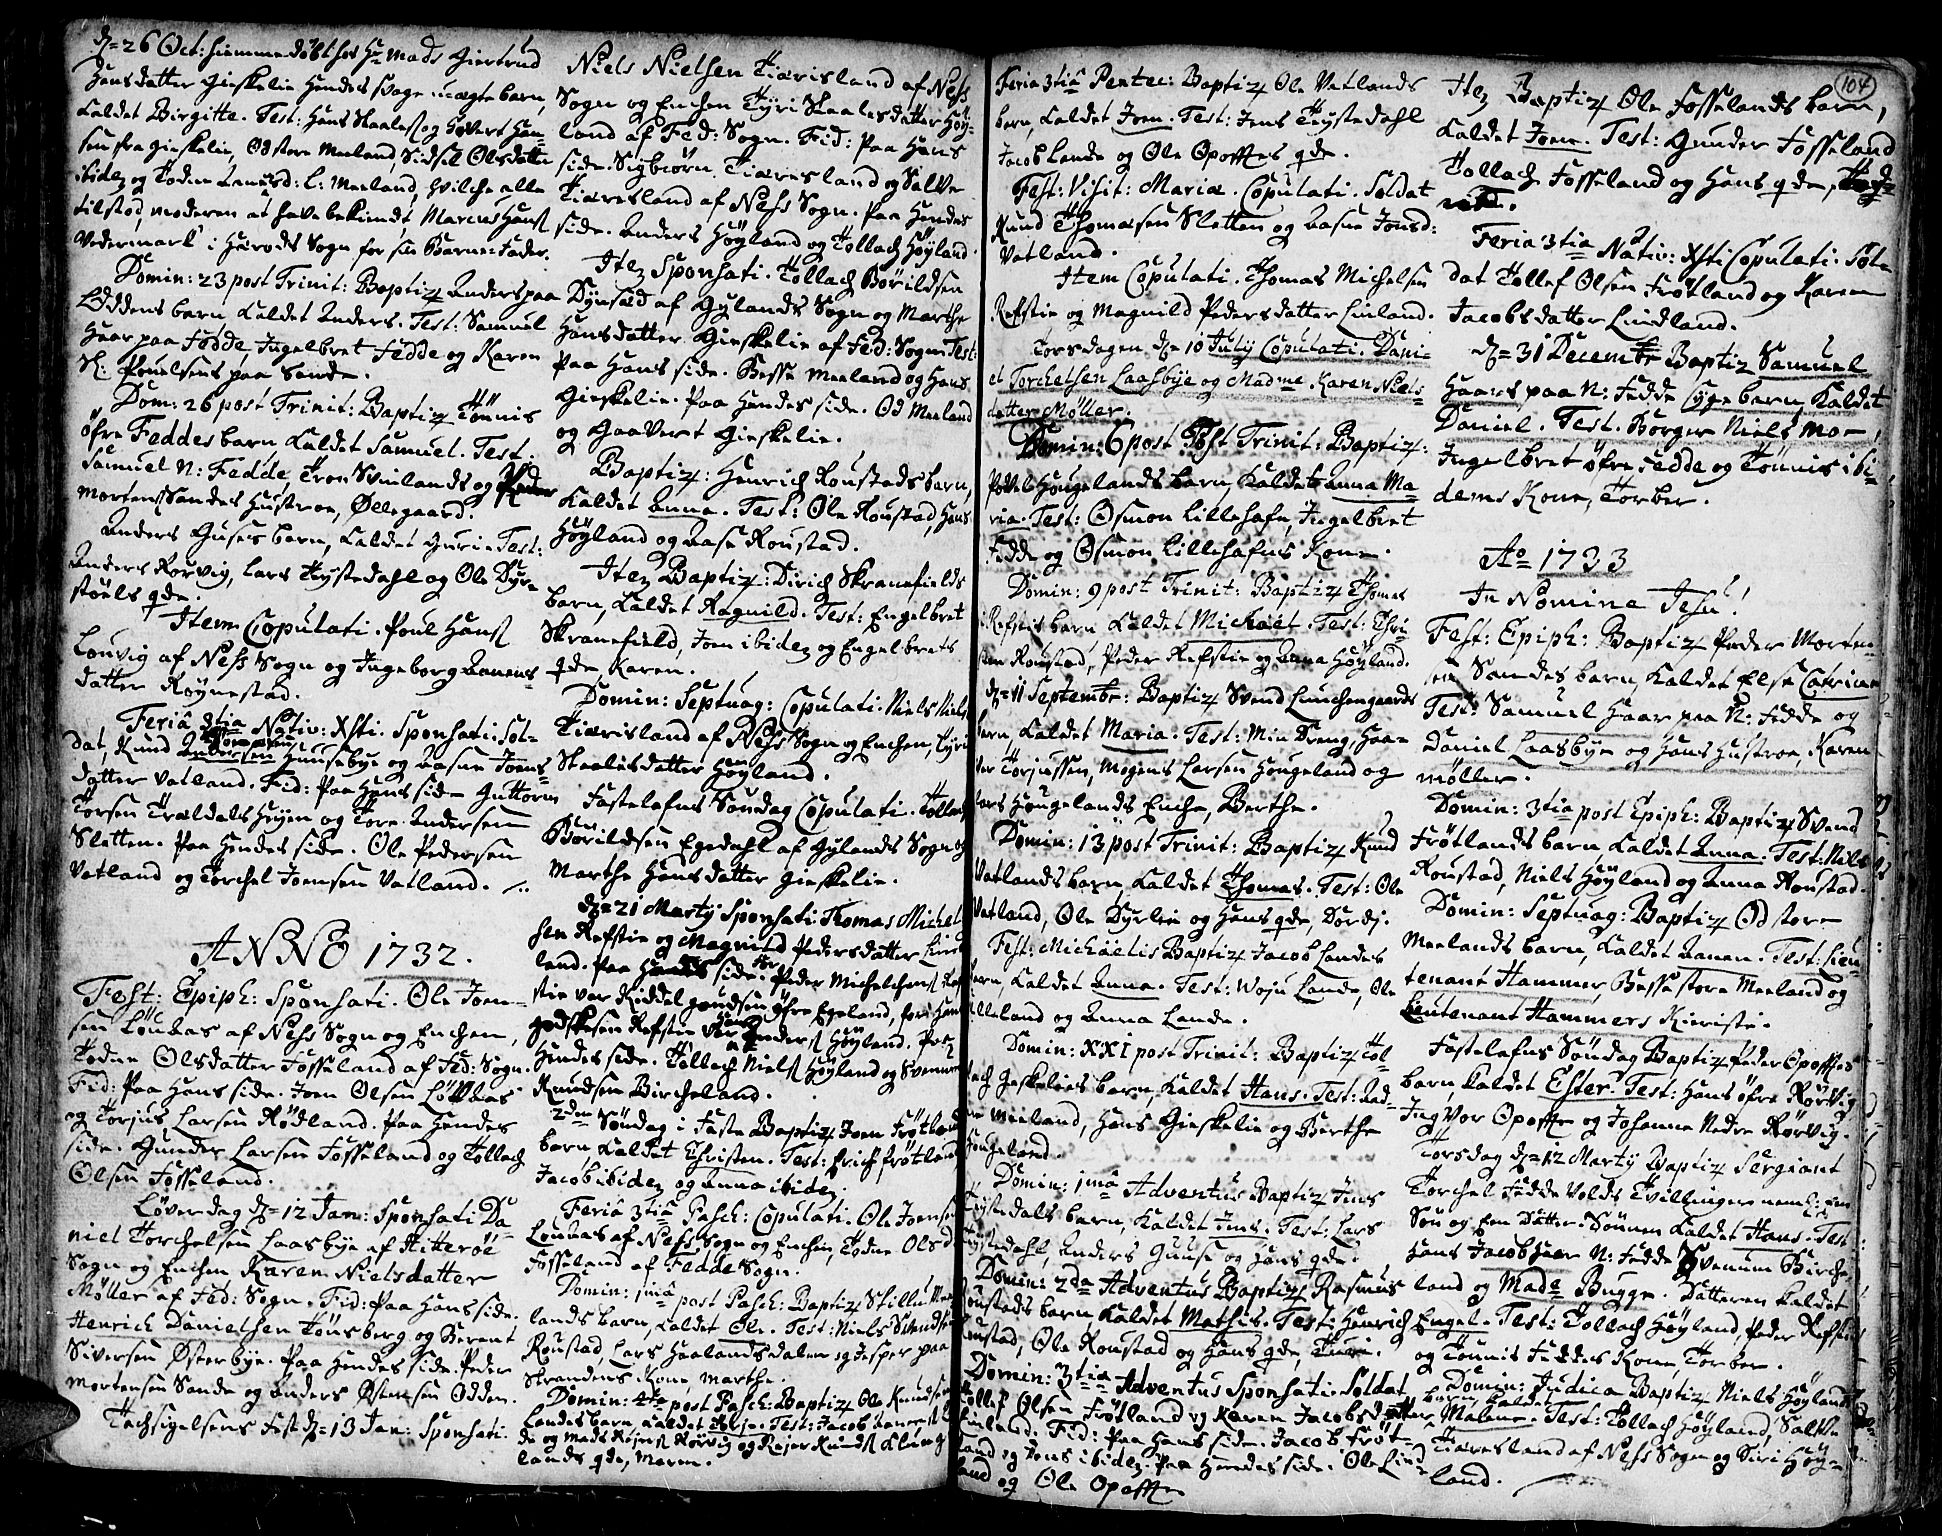 d= 26 Oct: hiemmedöbt hos Hr Mads Giertrud
Hansdatter Gieskelie Hendes svage uægte barn,
Kaldet Birgitte. Test: Hans Staales og Govert Han-
sen fra Gieskelie, Od store Meeland, Sidsel Olsdatter
ibidem og Todne L: Meeland, hvilche alle
tilstod, moderen at have bekiendt, Marcus Hans
Vedermark i Sogn for sin Barne-fader.
Domin: 23 post Trinit: Baptiz Anders paa
Oddens barn Kaldet Anders. Test: Samuel
Haar paa Fedde, Ingelbret Fedde og Karen
Sl: Povelsens paa Sande.
Dom: 26 post Trinit: Baptiz Tönnis
öfre Feddes barn Kaldet Samuel. Test:
Samuel N: Fedde, Tron Svinlands og Peder
Mortens Sandes Hustroe, Øllegaard.
Anders Guses barn, Kaldet Guri. Test:
Anders Rorvig, Lars Trystedahl og Ole Dyr-
stöels qde.
Item Copulati. Poul Hans
Louvig af Ness Sogn og Ingeborg Aanens-
datter Röynestad.
Feria 3tia Nativ: Xsti. Sponsati: Sol-
dat, Knud Thomesen Huusebye og Aasne Joens-
datter Vatland. Fid: Paa Hans side Guttorm
Torsen Trældals Heyen og Tore Andersen
Sletten. Paa Hendes side. Ole Pedersen
Vatland og Torchel Joensen Vatland.
ANNO 1732.
Fest: Epiph: Sponsati. Ole Joen-
sen Löcbas af Ness Sogn og Enchen,
Todne Olsdatter Fosseland af Fed: Sogn.
Fid: Paa Hans side. Joen Olsen Löcbas
og Torjus Larsen Rödland. Paa Hendes
side. Gunder Larsen Fosseland og Tollach
Olsen Fosseland.
Löverdag d= 12 Jan: Sponsati Da-
niel Torchelsen Laasbye af Hitteröe
Sogn og Enchen Karen Nielsdatter
Möller af Fed: Sogn. Fid: Paa Hans side.
Henrich Danielsen Tönsberg og Berent
Siversen Østerbye. Paa Hendes side. Peder
Mortensen Sande og Anders Ostensen Odden.
Tachsigelsens Fest d= 13 Jan: Sponsati.
Niels Nielsen Tiærisland af Ness
Sogn og Enchen Tyri Staalesdatter Höy-
land af Fed: Sogn. Fid: Paa Hans
side. Sigbiörn Tiæresland og Salve
Tiæresland af Ness Sogn. Paa Hendes
side. Anders Höyland og Tollach Höyland.
Item Sponsati. Tollach Börildsen
Dynsæd af Gylands Sogn og Marthe
Hansdatter Gieskelie af Fed: Sogn Test:
Paa Hans side. Besse Meeland og Hans
Gieskelie. Paa Hendes side. Od Meeland
og Gaavert Gieskelie.
Baptiz: Henrich Roustads barn,
Kaldet Anna. Test: Ole Roustad, Hans
Höyland og Aase Roustad.
Item Baptiz: Dirich Skranefields
barn, Kaldet Ragnild. Test: Engelbret
Skranefield, Joen ibidem og Engelbrets
qde Karen.
Domin: Septuag: Copulati. Niels Niels
Tiærisland af Ness Sogn og Enchen, Tyri
Staalesdatter Höyland.
Fastelafns Söndag Copulati. Tollach
Börildsen Egedahl af Gylands Sogn og
Marthe Hansdatter Gieskelie.
d= 21 Martij Sponsati Thomas Michel-
sen Refstie og Magnild Pedersdatter Lind-
land. Paa Hans side. for Peder Michelsen Ref-
stie var Riddel Gaudsen Öfre Egeland, for Hans
Godskesen Refstie var Hans Anders Höyland. Paa
Hendes side. Tollach Niels Höyland og Svenum
Knudsen Bircheland.
2den Söndag i Faste Baptiz Joen Frötlands
barn Kaldet Christen. Test: Erich Frötland
Jacob ibidem og Anna ibidem.
Feria 3tia Pasch: Copulati. Ole Joensen
Löcbas af Ness Sogn og Enchen, Todne Olsd:
Fosseland af Fedde Sogn.
Domin: 1ma post Pasch: Baptiz
lands barn, Kaldet Ole. Test: Niels
Roustad Lars Haalandsdalen og Jesper paa
Strandens Kone, Marthe.
Domin: 4ta post Pasch: Baptiz Ole Knudsen
Landes barn, Kaldet Terje. Test: Jacob
de og Mads Rörvig og Knuds Klung-
lands qde, Maren.
Feria 3tia Pentec: Baptiz Ole Vatlands
barn, Kaldet Joen. Test: Jens Trystedahl
Jacob Lande og Ole Opofftes qde.
Fest: Visit: Mariæ. Copulati. Soldat
Knud Thomasen Sletten og Aasne Jonsd:
Vatland.
Item Copulati. Thomas Michelsen
Refstie og Magnild Pedersdatter Linland.
Torsdagen d= 10 July Copulati. Dani-
el Torchelsen Laasbye og Madme Karen Niels-
datter Möller.
Domin: 6 post Fest Trinit: Baptiz:
Povel Hougelands barn, Kaldet Anna Ma-
ria. Test: Osmon Lillehafn, Ingelbret
Fedde og Osmon Lillehafns Kone.
Domin: 9 post Trinit: Baptiz Thomes
Refstis barn Kaldet Michael. Test: Chri-
sten Roustad, Peder Refstie og Anna Höyland.
d= 11 Septembr: Baptiz Svend Lunchengaards
barn, Kaldet Maria. Test: Min Dreng, Haa-
ver Torjussen, Mogens Larsen Hougeland og
Lars Hougelands Enche, Berthe.
Domin: 13 post Trinit: Baptiz Knud
Vatlands barn, Kaldet Thomas. Test: Ole
Vatland, Ole Dyrlie og Hans qde, Dordj.
Fest: Michaelis Baptiz Jacob Landes
barn, Kaldet Anna. Test: Lande, Ole
Lilleland og Anna Lande.
Domin: XXI post Trinit: Baptiz Tol-
lach Geskelies barn, Kaldet Hans. Test: Aad-
ne Meeland, Hans Gieskelie og Berthe
Hougeland.
Domin: 1ma Adventus Baptiz Jens
Trystedals barn, Kaldet Jens. Test: Lars
Trystedahl, Anders Guuse og Hans qde.
Domin: 2da Adventus Baptiz Rasmus
Roustads barn Kaldet Mathis. Test: Henrich
Roustad, Ole Roustad og Hans qde, Turi.
Domin: 3tia Adventus Sponsati Soldat
Tollef Olsen Frötland og Karen Jacobsdatter
Linland. Fid: Paa Hans side. Jacob Fröt-
land og Jens ibidem. Paa Hendes side. Ole Lind-
land og Ole Opoffte
104
Item Baptiz Ole Fosselands barn,
Kaldet Joen. Test: Gunder Fosseland
Tollach Fosseland og Hans qde,
Feria 3tia Nativ: Xsti Copulati. Sol-
dat Tollef Olsen Frötland og Karen
Jacobsdatter Lindland.
d= 31 Decembr Baptiz Samuel
Haars paa N: Fedde Syge barn, Kaldet
Daniel. Test. Borger Niels Mo-,
Ingelbret öfre Fedde og Tönnis ibi-
dems Kone, Torber.
Ao 1733
In Nomine Jesu!
Fest: Epiph: Baptiz Peder Morten-
sen Sandes barn, Kaldet Else Catrine
Test: Samuel Haar paa N: Fedde og
Daniel Laasbye og Hans Hustroe, Karen
Möller.
Domin: 3tia post Epiph: Baptiz Svend
Frötlands barn Kaldet Anna. Test: Niels
Roustad, Niels Höyland og Anna Roustad.
Domin: Septuag: Baptiz Od store
Meelands barn, Kaldet Aanen. Test: Lieu-
tenant Hammer, Besse store Meeland og
Lieutenant Hammers Kieriste.
Fastelafns Söndag Baptiz Peder Opofftes
barn, Kaldet Ester. Test: Hans öfre Rörvig
Ingvor Opoffte og Johanna Nedre Rörvig.
Torsdag d= 12 Martij Baptiz Sergiant
Torchel Fedde Volds Tvillinger neml: Een
Sön og Een Datter. Sönnen Kaldet Hans. Test:
Hans Jacob Haar N: Fedde Svenum Birche-
land og Made Bugge. Datteren Kaldet
Engel. Test: Tollach Höyland, Peder Refstie
og Tönnis Feddes Kone, Torber.
Domin: Judica Baptiz Niels Höylands
barn, Kaldet
Malene. Test: Tollach Höyland, Salve
Tiæresland af Ness Sogn og Siri Höy-
land.